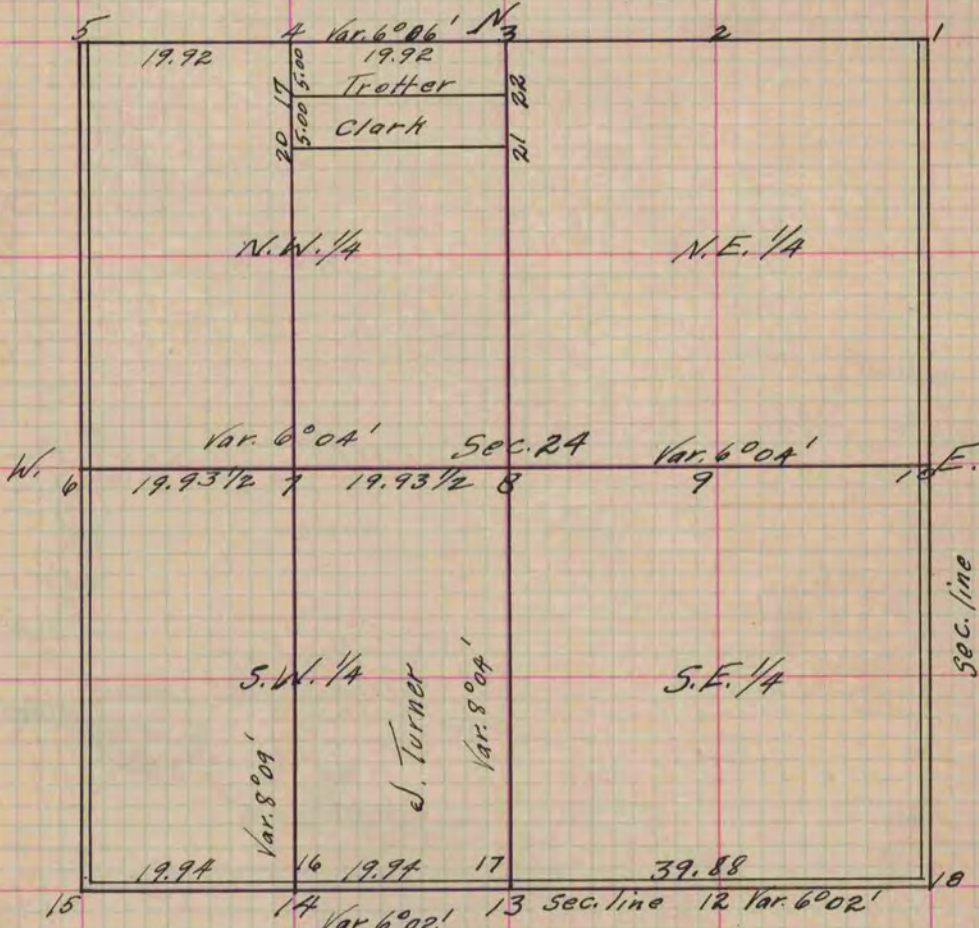 N
5 4 Var. 6°06' 3 2 1
19.92 5.00 19.92
17 Trotter 22
5.00 Clark
20 21
N.W. 1/4 N.E. 1/4
Var. 6°04' Sec. 24 Var. 6°04'
W. 6 19.93 1/2 7 19.93 1/2 8 9 10 E.
Sec. line
S.W. 1/4 S.E. 1/4
J. Turner
Var. 8°04'
Var. 8°09'
19.94 16 19.94 17 39.88
15 14 13 Sec. line 12 Var. 6°02' 18
Var 6°02'